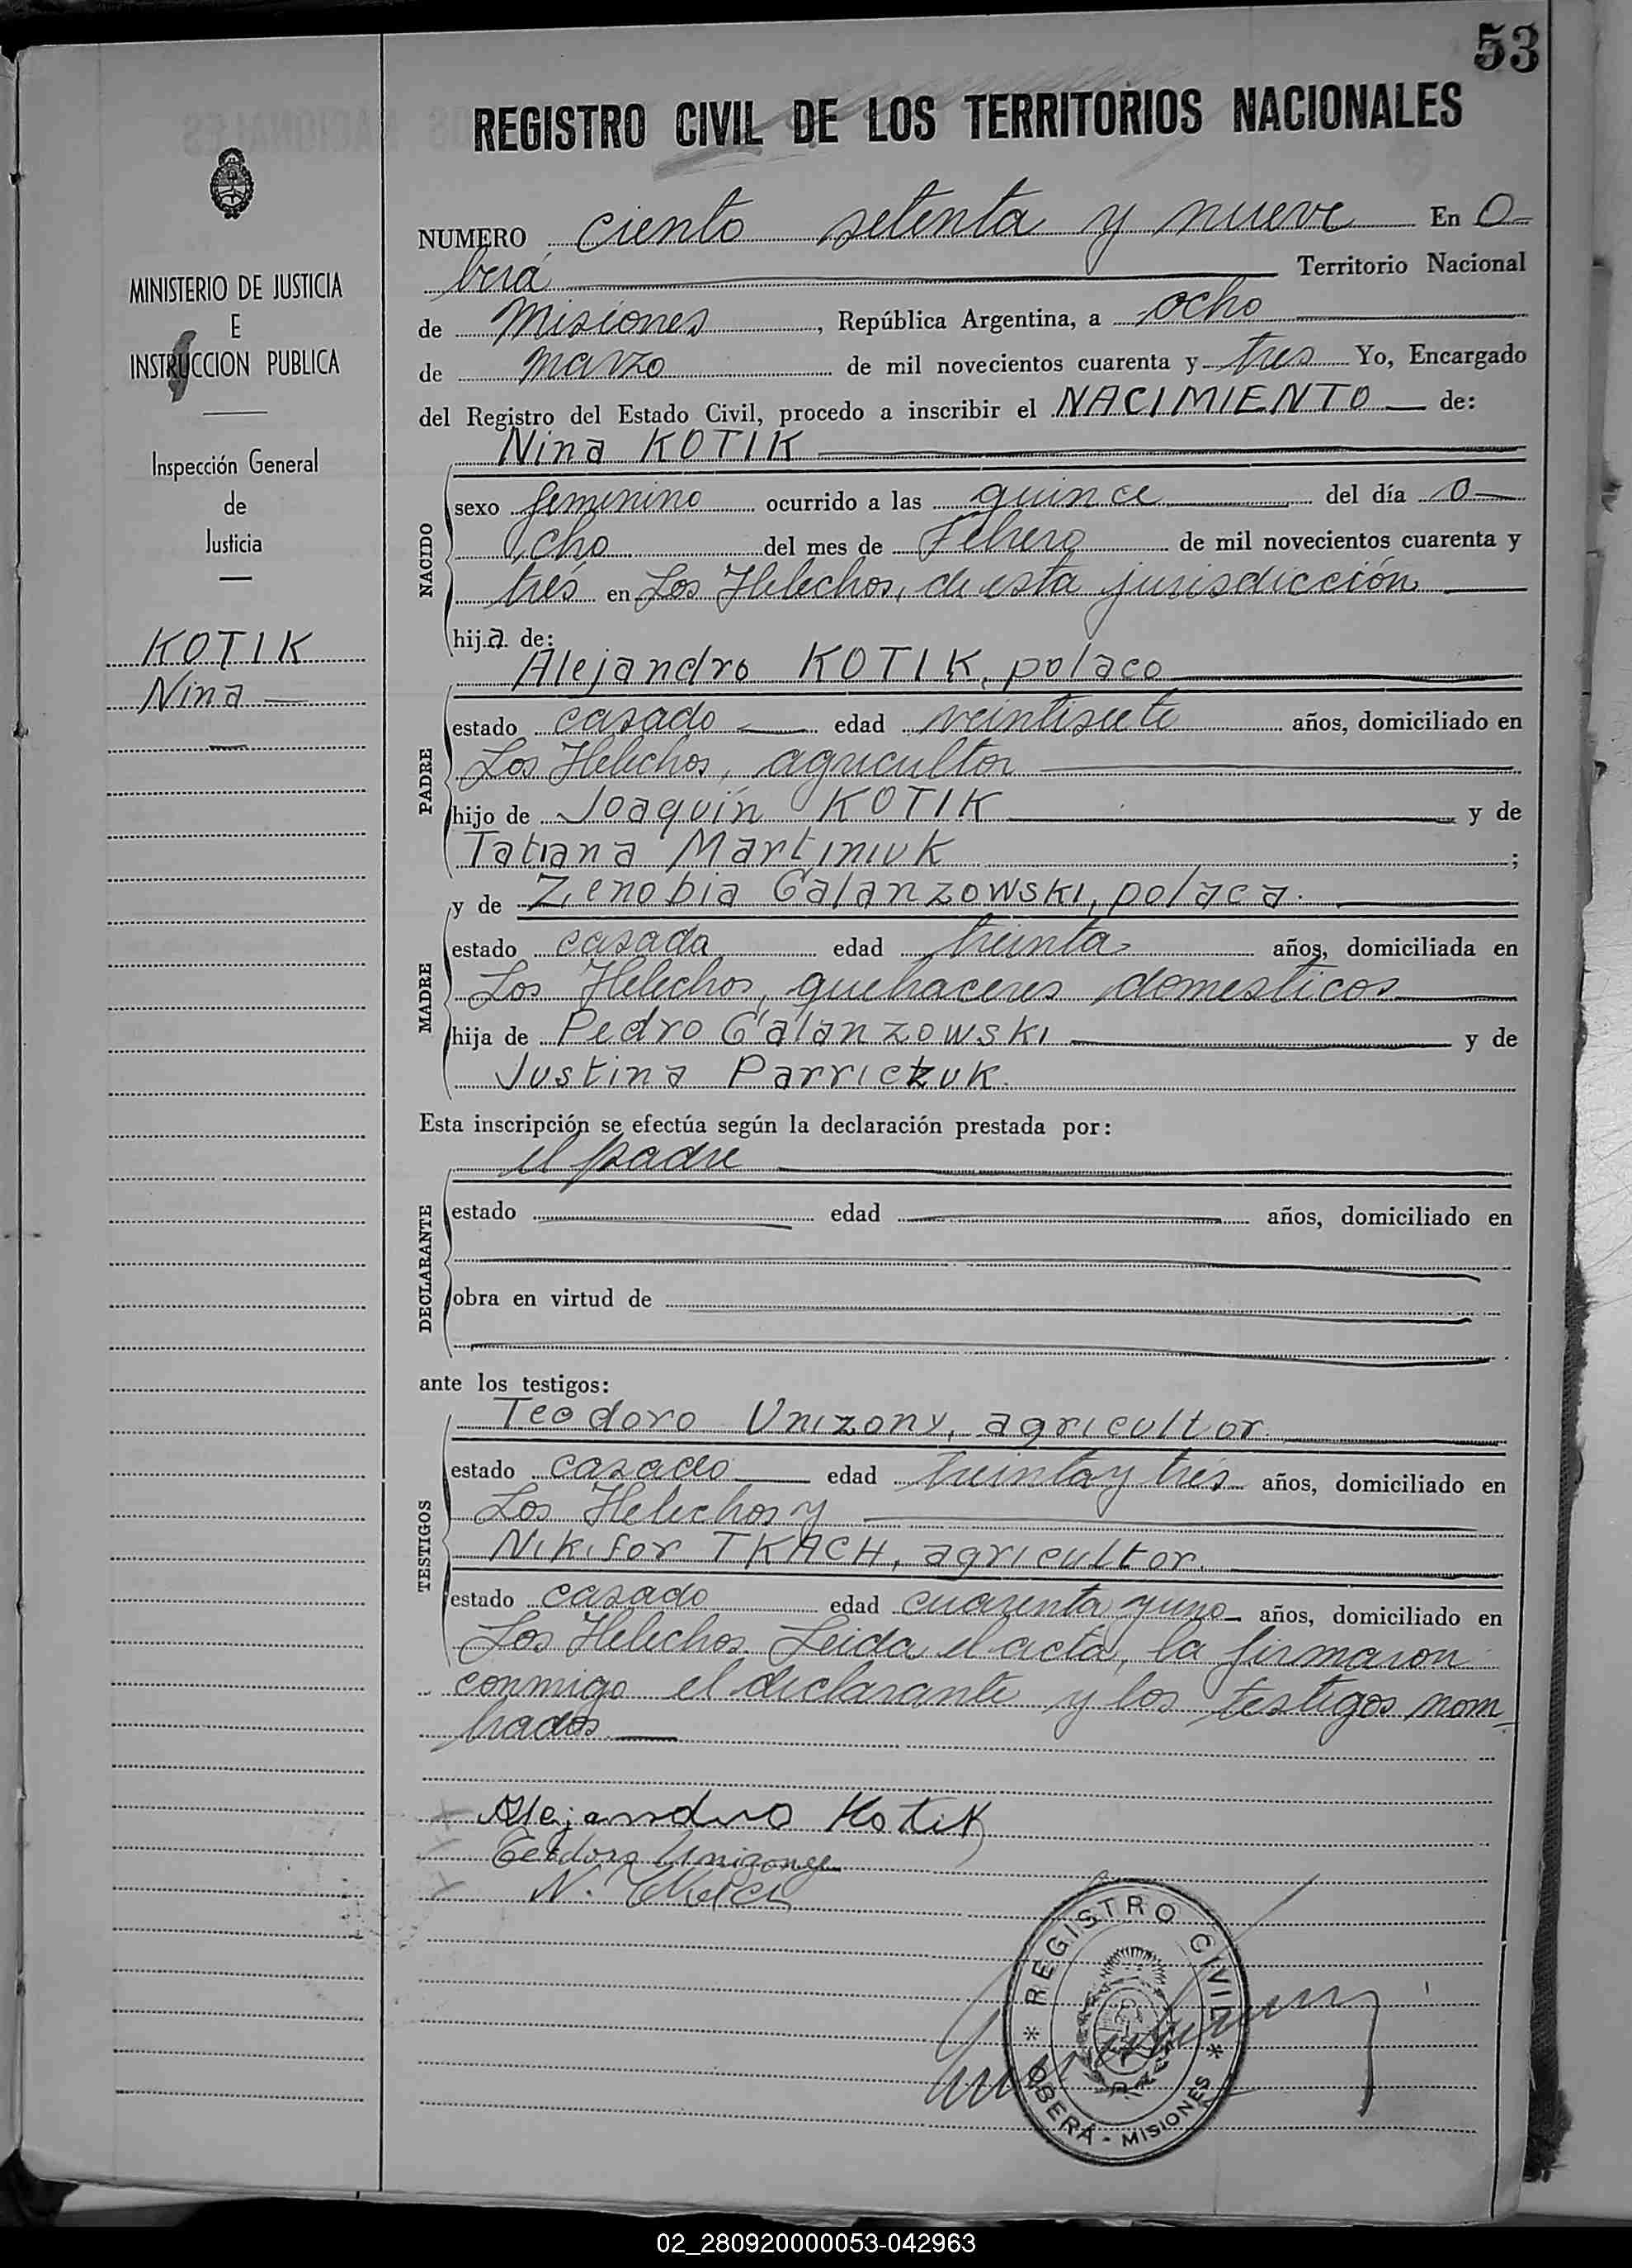 53
REGISTRO CIVIL DE LOS TERRITORIOS NACIONALES
MINISTERIO DE JUSTICIA
E
INSTRUCCION PUBLICA
Inspección General
de
Justicia
KOTIK
Nina
NUMERO ciento setenta y nueve En O-
berá Territorio Nacional
de Misiones, República Argentina, a ocho
de marzo de mil novecientos cuarenta y tres Yo, Encargado
del Registro del Estado Civil, procedo a inscribir el NACIMIENTO de:
Nina KOTIK
NACIDO
sexo femenino ocurrido a las quince del día o-
cho del mes de Febrero de mil novecientos cuarenta y
trés en Los Helechos, de esta jurisdicción
hija de:
Alejandro KOTIK, polaco
PADRE
estado casado edad veintisiete años, domiciliado en
Los Helechos, agricultor
hijo de Joaquín KOTIK y de
Tatiana Martiniuk ;
y de Zenobia Galanzowski, polaca.
MADRE
estado casada edad treinta años, domiciliada en
Los Helechos, quehaceres domesticos
hija de Pedro Galanzowski y de
Justina Parriczuk.
Esta inscripción se efectúa según la declaración prestada por:
el padre
DECLARANTE
estado edad años, domiciliado en
obra en virtud de
ante los testigos:
Teodoro Unizony, agricultor
TESTIGOS
estado casado edad treinta y trés años, domiciliado en
Los Helechos y
Nikifor TKACH, agricultor.
estado casado edad cuarenta y uno años, domiciliado en
Los Helechos. Leida el acta, la firmaron
conmigo el declarante y los testigos nom-
brados
Alejandro Kotik
N.
REGISTRO CIVIL
* OBERÁ - MISIONES *
02_280920000053-042963